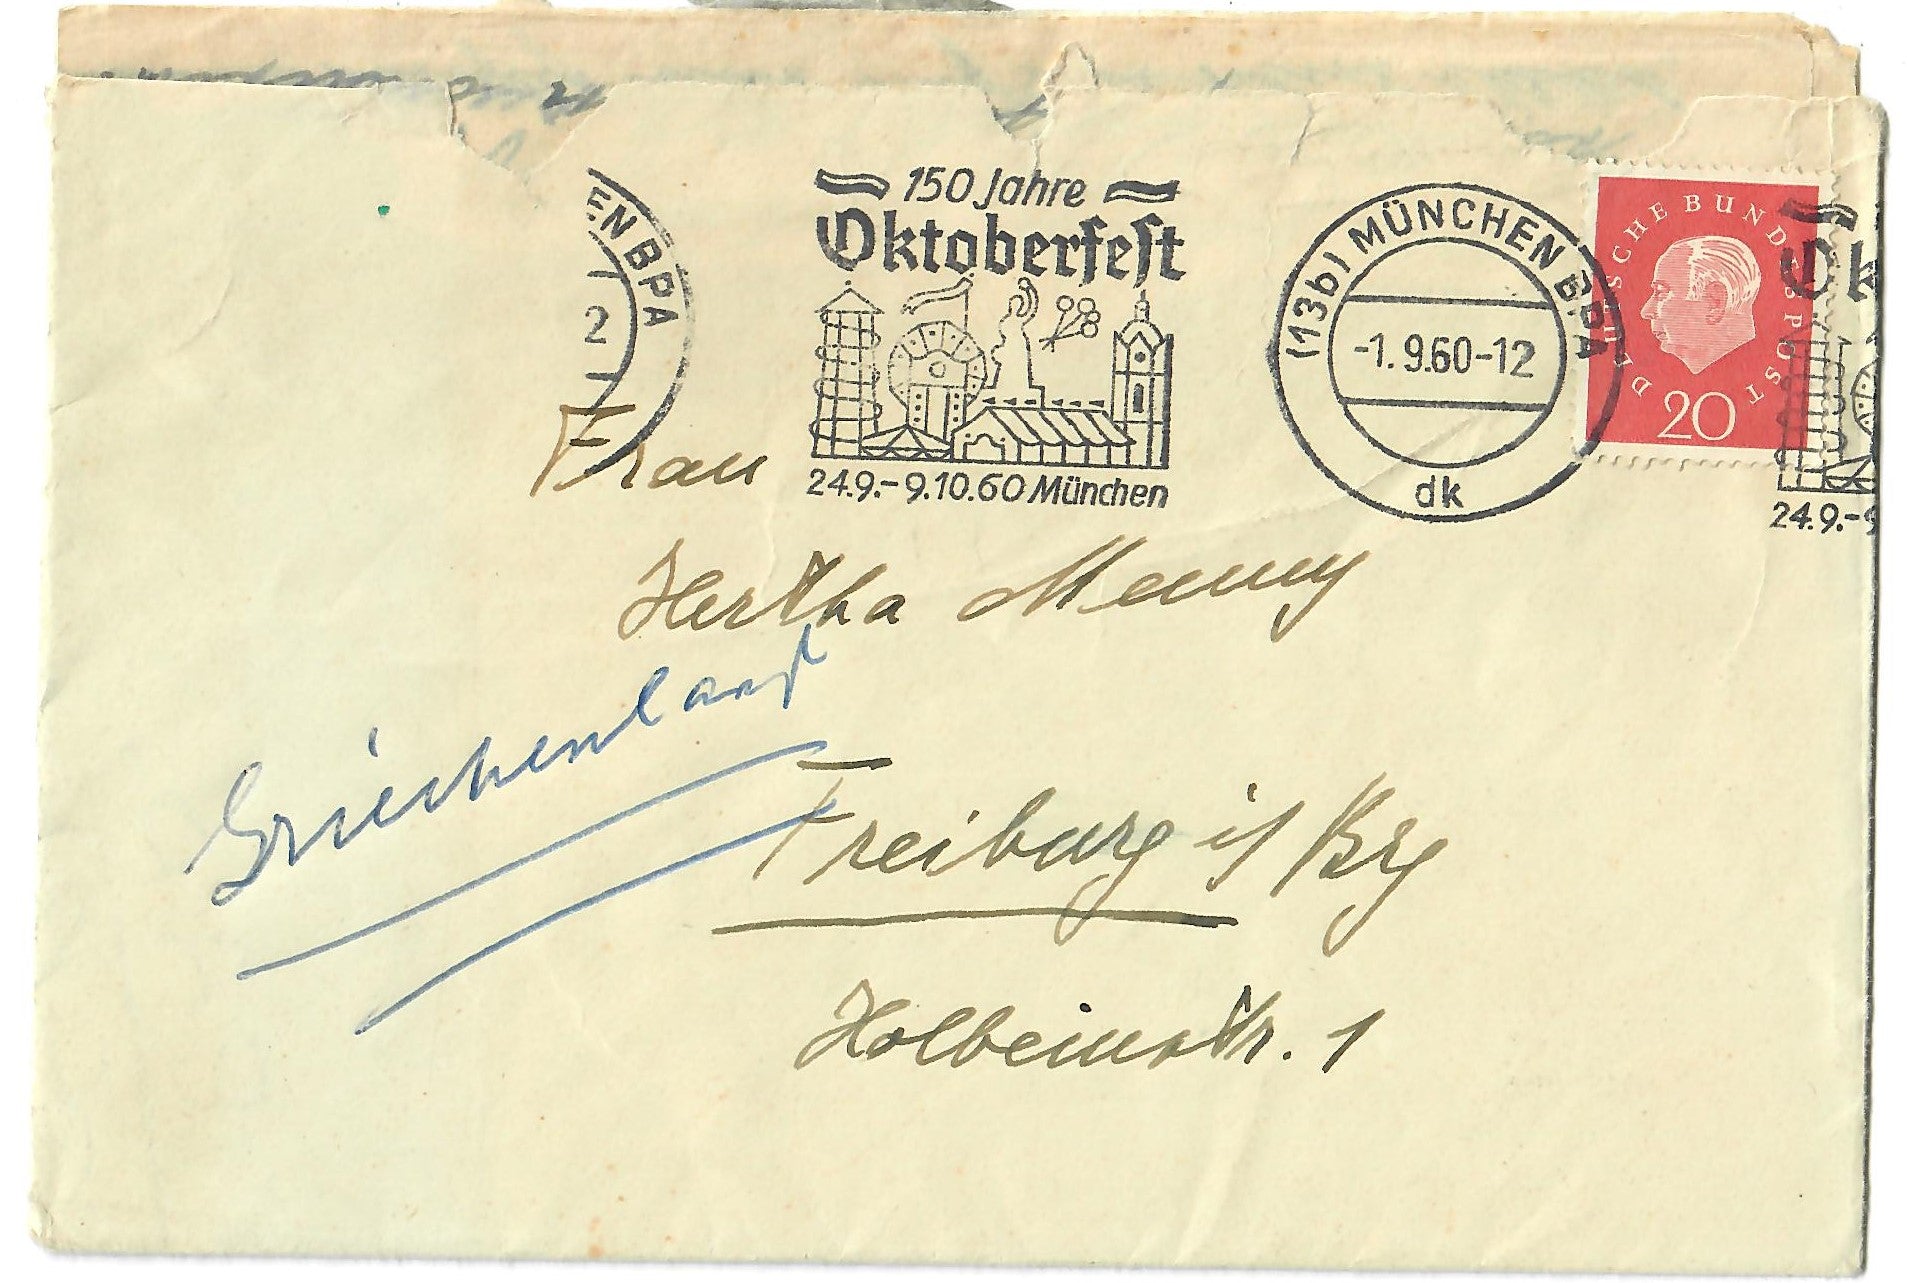 150 Jahre
Oktoberfest
24.9.-9.10.60 München
EN BPA
2
(13b) MÜNCHEN BPA
-1.9.60-12
dk
DEUTSCHE BUNDESPOST
20
Ok
24.9.-9
Frau
Hertha Menny
Griechenland
Freiburg i/ Brg
Holbeinstr. 1